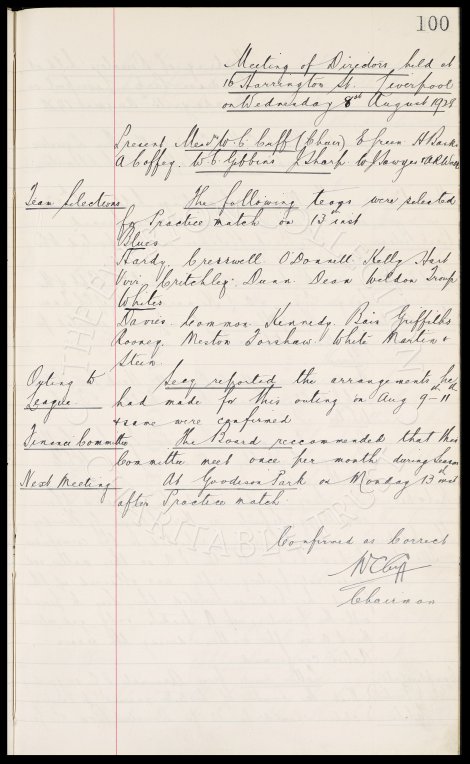 100
Meeting of Directors held at
16 Harrington St. Liverpool
on Wednesday 8th August 1928
Present Messrs W. C. Cuff (Chair) E Green H Banks
A Coffey. W C Gibbins J Sharp W J Sawyer &
Team Selections The following teams were selected
for Practice match on 13th inst
Blues
Hardy Cresswell O'Donnell Kelly Hart
Virr Critchley Dunn Dean Weldon Troup
Whites
Davies Common Kennedy Bain Griffiths
Rooney Meston Forshaw White Martin &
Stein
Outing to Secy reported the arrangements he
League. had made for this outing on Aug 9th - 11th
& same were confirmed
Finance Committee The Board reccommended that this
Committee meet once per month during Season
Next Meeting At Goodison Park on Monday 13th inst
after Practice match
Confirmed as Correct
W C Cuff
Chairman